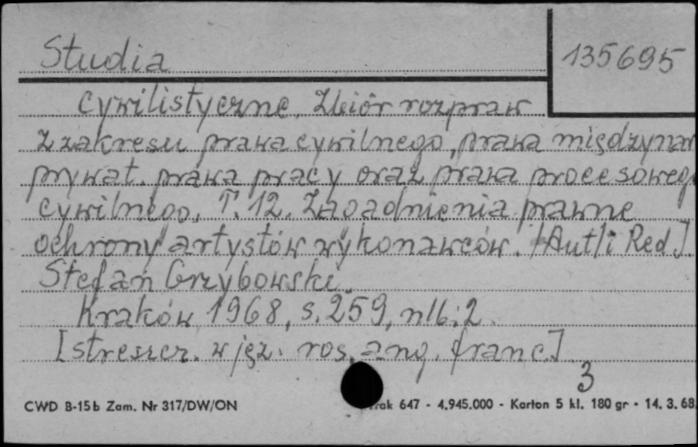 Studia
135695
cywilistyczne. Zbiór rozpraw
z zakresu prawa cywilnego, prawa międzynar
prywat. prawa pracy oraz prawa procesoweg
cywilnego, T. 12. Zagadnienia prawne
ochrony artystów wykonawców. [Aut/i Red.].
Stefan Grzybowski.
Kraków 1968, s. 259, nlb: 2.
[streszcz. w jęz. ros. ang. franc.]
3
CWD B-15b Zam. Nr 317/DW/ON
647 - 4.945.000 - Karton 5 kl. 180 gr - 14. 3. 68.